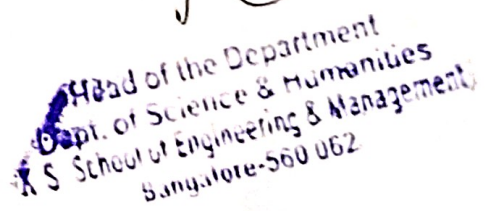 Head of the Department
Dept. of Science & Humanities
K S School of Engineering & Management
Bangalore-560 062